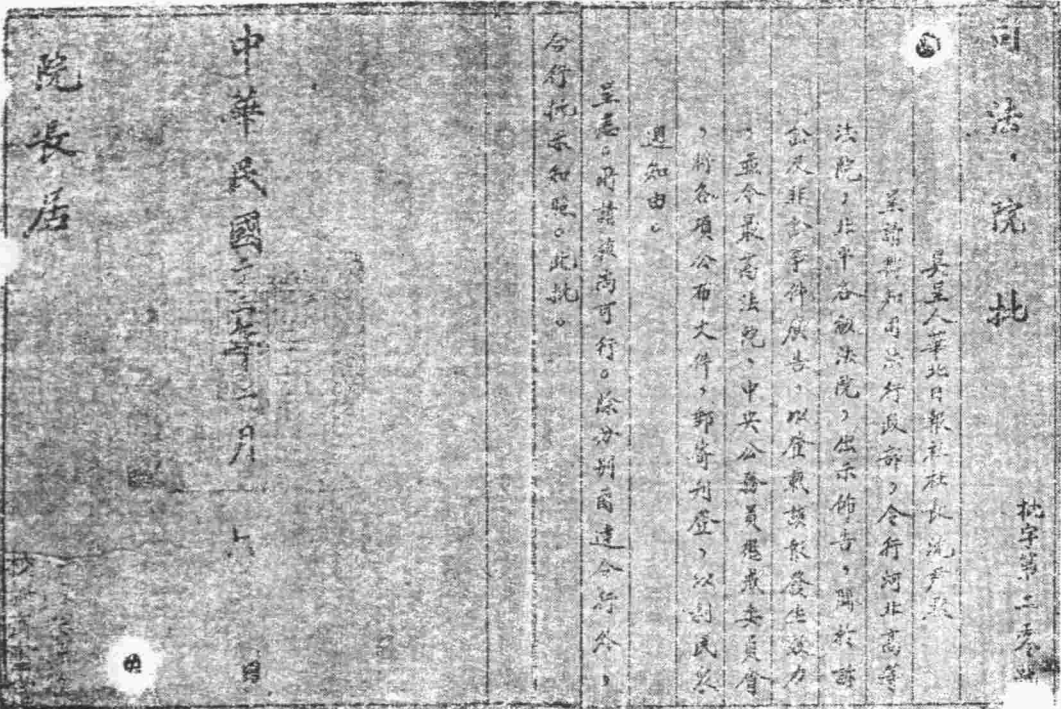 司法院批
批字第二
具呈人華北日報社社長沈尹默
呈請轉知司法行政部,令行河北高等
法院,北平各級法院,佈告,關於訴
訟及非訟事件廣告,以登載該報發生效力
,並令最高法院、中央公務員懲戒委員會
,將各項公布文件,郵寄刊登,以利民眾
週知由。
呈悉。所請核尚可行。除分別函達令行外,
合行批示知照。此批。
中華民國二十二年二月六日
院長居